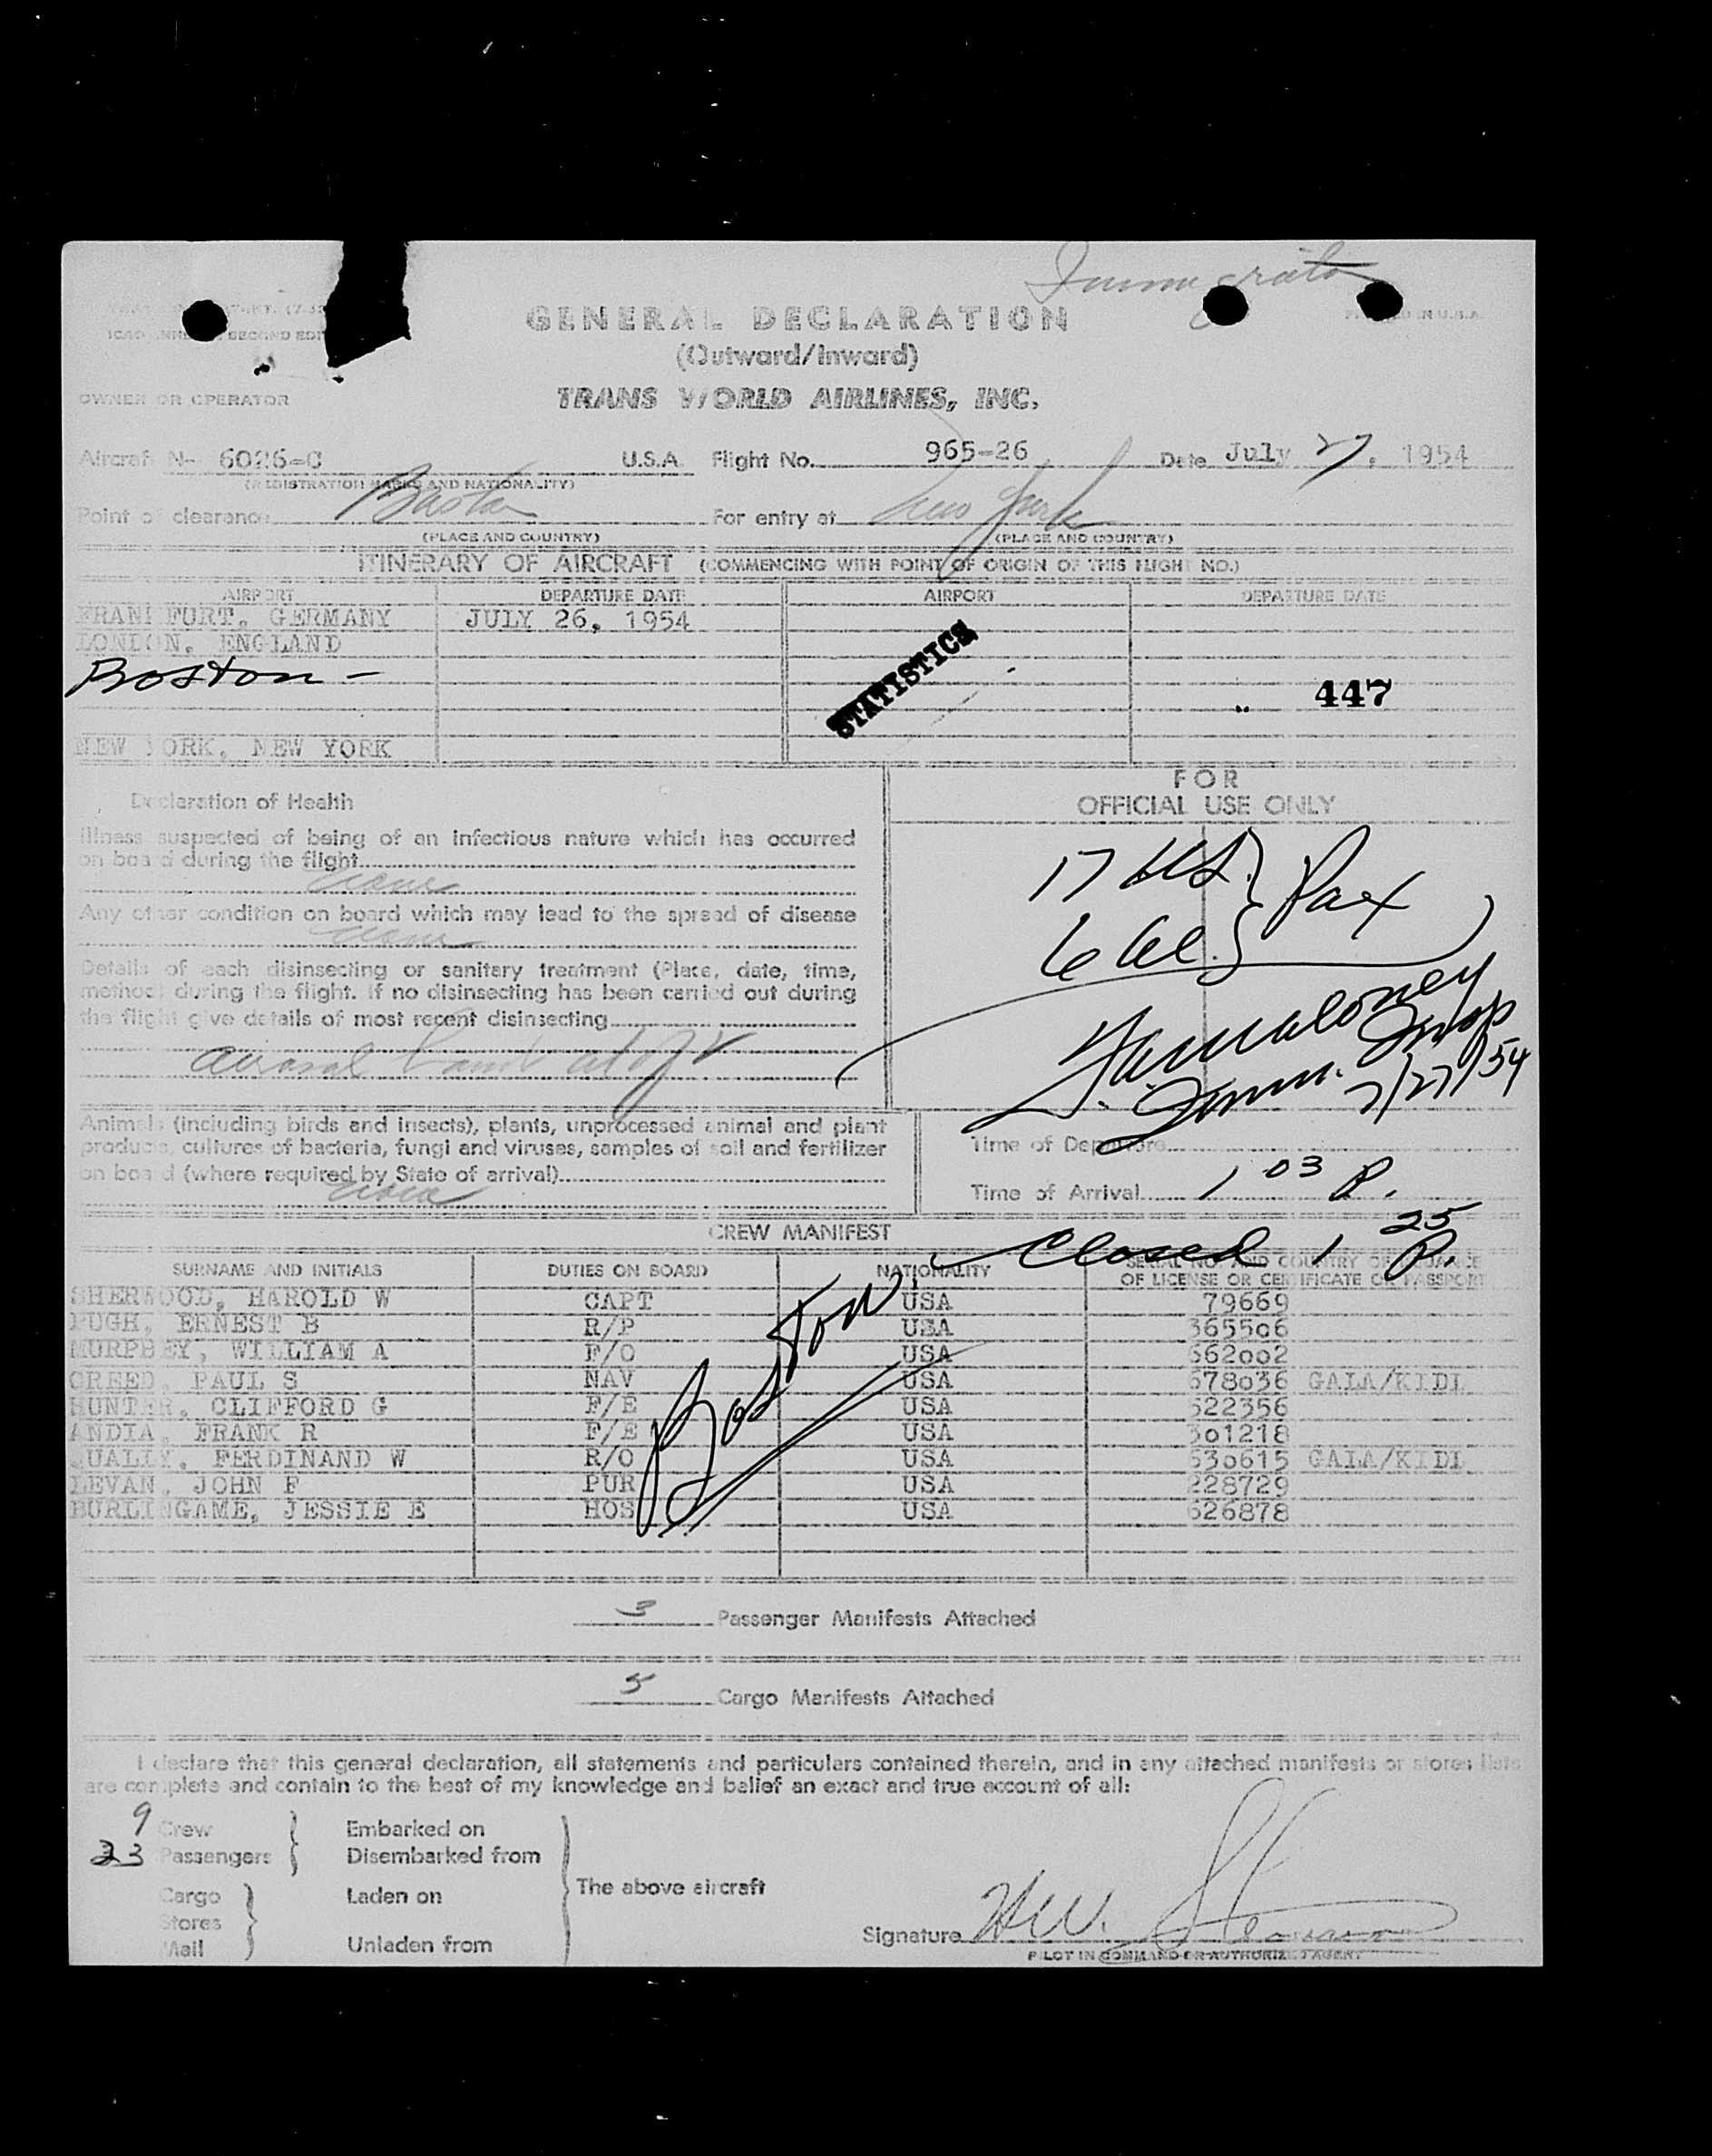 GENERAL DECLARATION
(Outward/Inward)
TRANS WORLD AIRLINES, INC.
OWNER OR OPERATOR
Aircraft N- 6026-C U.S.A. Flight No. 965-26 Date July 27, 1954
(REGISTRATION MARKS AND NATIONALITY)
Point of clearance Boston For entry at New York
(PLACE AND COUNTRY) (PLACE AND COUNTRY)
ITINERARY OF AIRCRAFT (COMMENCING WITH POINT OF ORIGIN OF THIS FLIGHT NO.)
AIRPORT DEPARTURE DATE AIRPORT DEPARTURE DATE
FRANKFURT, GERMANY JULY 26, 1954
LONDON, ENGLAND
STATISTICS
Boston -
447
NEW YORK, NEW YORK
FOR
OFFICIAL USE ONLY
Declaration of Health
Illness suspected of being of an infectious nature which has occurred
on board during the flight
none
Any other condition on board which may lead to the spread of disease
none
Details of each disinsecting or sanitary treatment (Place, date, time,
method) during the flight. If no disinsecting has been carried out during
the flight give details of most recent disinsecting
17 US. } Pax
6 al. }
Imm. Insp
7/27/54
Animals (including birds and insects), plants, unprocessed animal and plant
products, cultures of bacteria, fungi and viruses, samples of soil and fertilizer
on board (where required by State of arrival)
none
Time of Departure
Time of Arrival 1 03 P.
CREW MANIFEST
Closed 1 25 P.
Boston,
SURNAME AND INITIALS DUTIES ON BOARD NATIONALITY SERIAL NO. AND COUNTRY OF ISSUANCE
OF LICENSE OR CERTIFICATE OR PASSPORT
SHERWOOD, HAROLD W CAPT USA 79669
PUGH, ERNEST B R/P USA 365506
MURPHEY, WILLIAM A F/O USA 662002
CREED, PAUL S NAV USA 678036 GALA/KIDL
HUNTER, CLIFFORD G F/E USA 522356
ANDIA, FRANK R F/E USA 301218
QUALLY, FERDINAND W R/O USA 630615 GALA/KIDL
LEVAN, JOHN F PUR USA 228729
BURLINGAME, JESSIE E HOS USA 626878
3 Passenger Manifests Attached
5 Cargo Manifests Attached
I declare that this general declaration, all statements and particulars contained therein, and in any attached manifests or stores lists
are complete and contain to the best of my knowledge and belief an exact and true account of all:
9 Crew Embarked on
23 Passengers Disembarked from
Cargo Laden on The above aircraft
Stores
Mail Unladen from
Signature H.W.
PILOT IN COMMAND OR AUTHORIZED AGENT